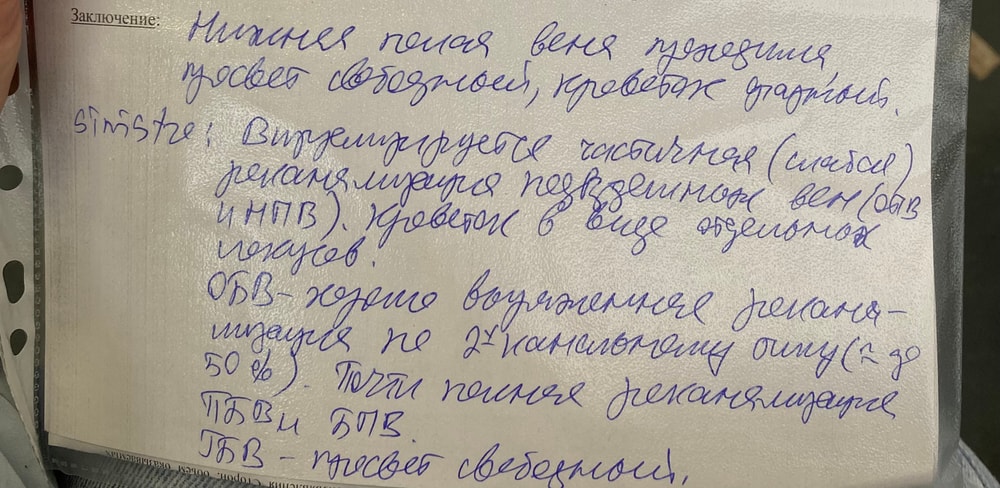 Заключение:
Нижняя полая вена проходима,
просвет свободный, кровоток фазный.
sinistra: Визуализируется частичная (слабая)
реканализация подвздошных вен (ОПВ
и НПВ). Кровоток в виде отдельных
локусов.
ОБВ – хорошо выраженная рекана-
лизация по 2х канальному типу (≈ до
50%). Почти полная реканализация
ПБВ и БПВ.
ГБВ – просвет свободный.